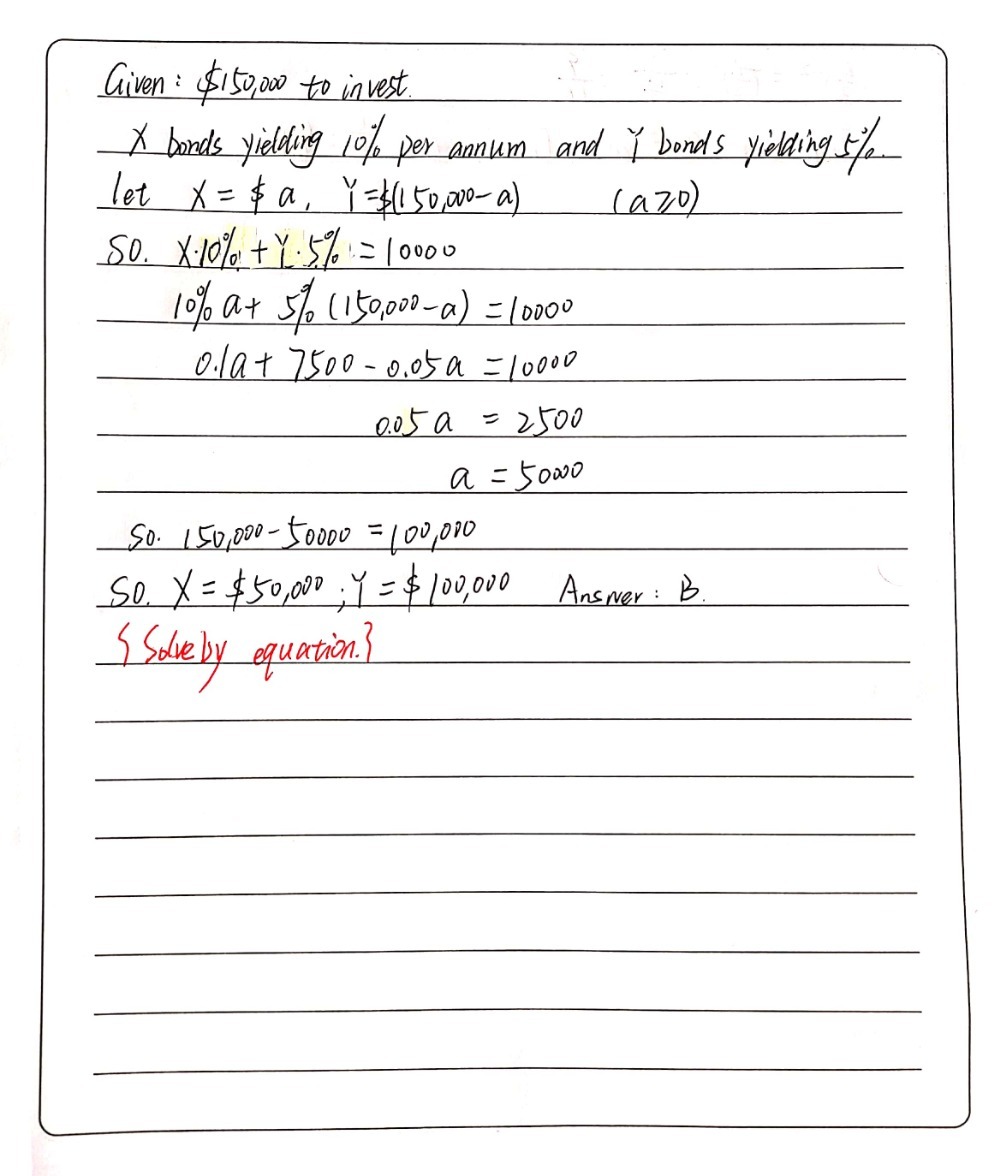 Given: $150,000 to invest.
X bonds yielding 10% per annum and Y bonds yielding 5%.
let X = $ a, Y=$(150,000-a) (a⩾0)
SO. X·10% + Y·5% = 10000
10% a + 5% (150,000-a) = 10000
0.1a + 7500 - 0.05a = 10000
0.05 a = 2500
a = 50000
So. 150,000-50000 = 100,000
SO. X = $50,000 ; Y = $ 100,000 Answer: B.
{ Solve by equation. }